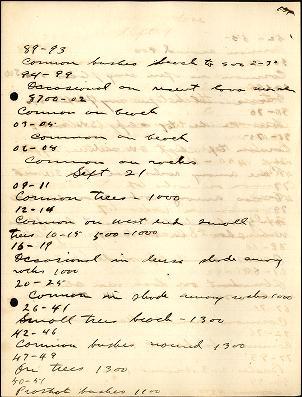 89-93
Common bushes beach to 500 2-3°
94-99
Occasional on recent lava
3700-02
Common on beach
03-05
Common on beach
06-08
Common on rocks
Sept 21
09-11
Common trees - 1000
12-14
Common on west end small
trees 10-15 500-1000
16-19
Occasional in dense shade among
rocks 1000
20-25
Common in shade among rocks 1000
26-41
Small trees beach - 1300
42-46
Common bushes round 1300
47-49
On trees 1300
50-51
Prostrate bushes 1100